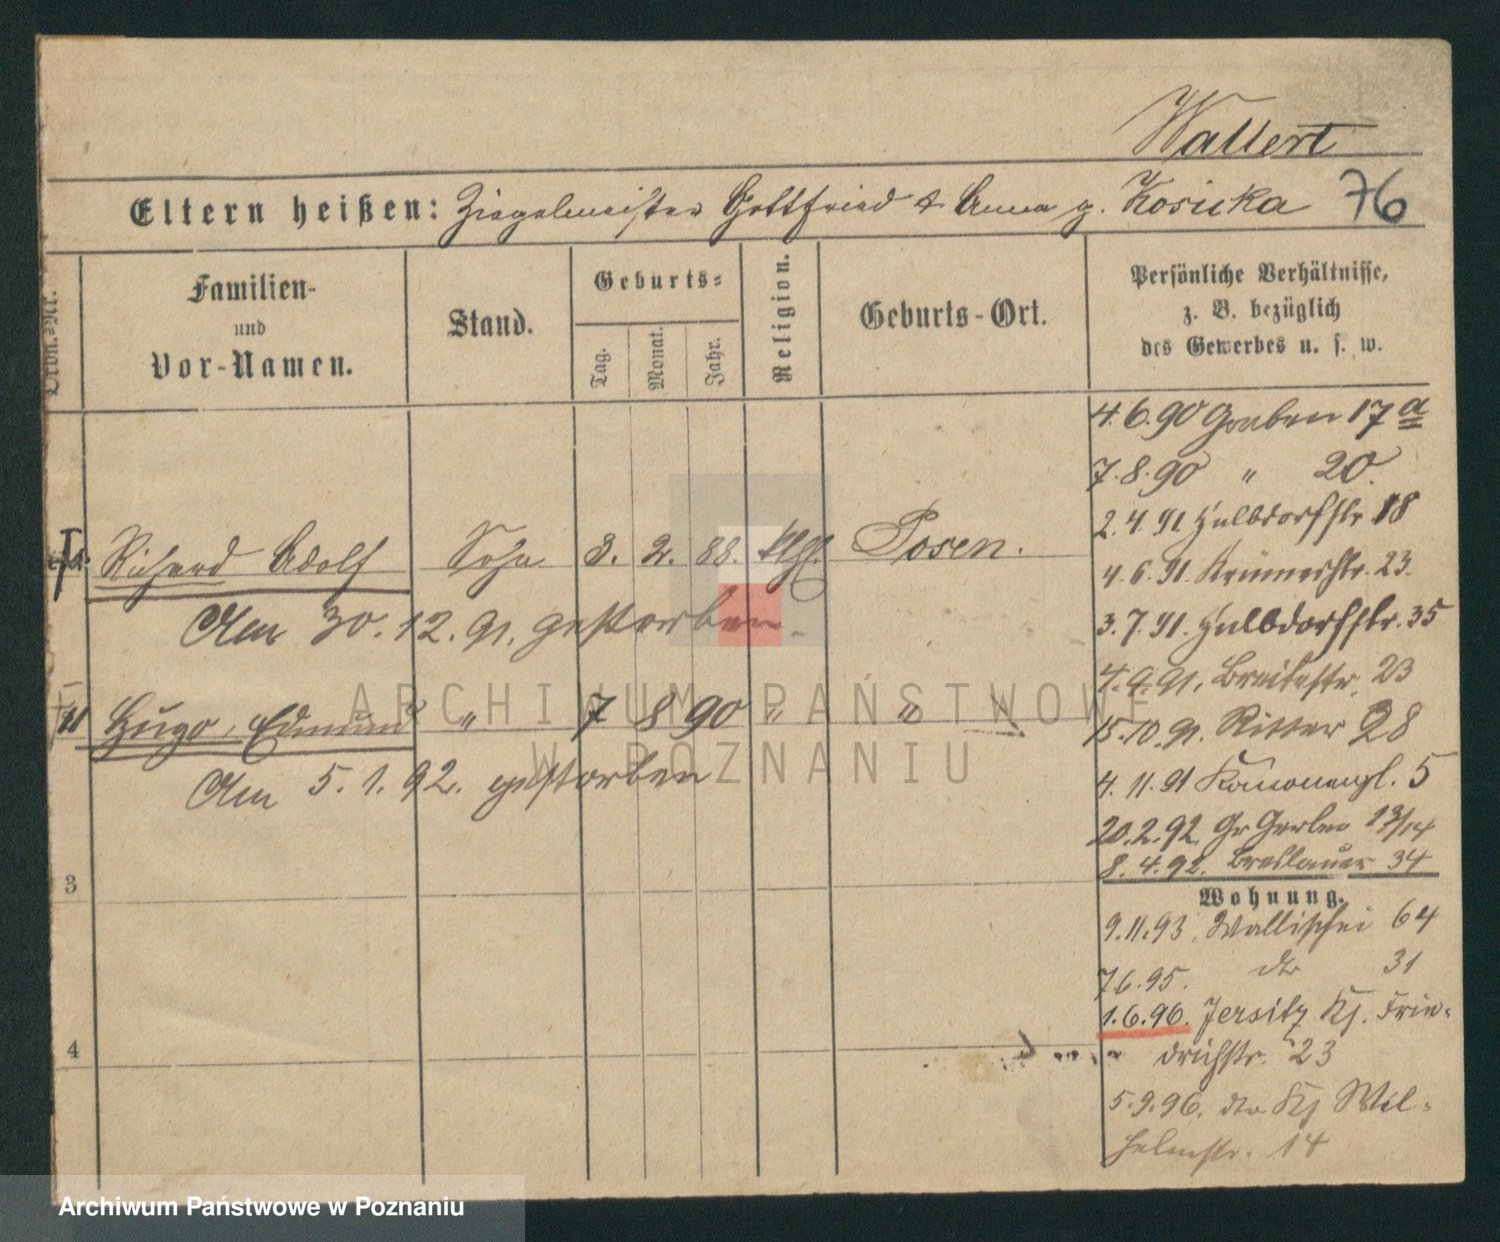 Wallert
Eltern heißen: Ziegelmeister Gottfried & Anna g. Kosicka 76
Ordn.-Nr.
Familien-
und
Vor-Namen.
Stand.
Geburts-
Tag.
Monat.
Jahr.
Religion.
Geburts-Ort.
Persönliche Verhältnisse,
z. B. bezüglich
des Gewerbes u. s. w.
4.6.90 Graben 17 a
7.8.90 " 20.
2.4.91 Halbdorfstr 18
Richard Adolf Sohn 3. 2. 88. Posen.
4.6.91. Krämerstr. 23.
Am 30.12.91. gestorben.
3.7.91. Halbdorfstr. 35
4.9.91. Breitestr. 23
Hugo, Edmund " 7 8 90 " "
15.10.91. Ritter 28
4.11.91 Kanonenpl. 5
Am 5.1.92. gestorben
20.2.92. Gr Gerber 13/14
8.4.92. Breslauer 34
3
Wohnung.
9.11.93. Wallischei 64
7.6.95. dto 31
1.6.96. Jersitz Ks. Frie-
drichstr. 23
4
5.9.96. dto Ks Wil-
helmstr. 14
ARCHIWUM PAŃSTWOWE
W POZNANIU
Archiwum Państwowe w Poznaniu